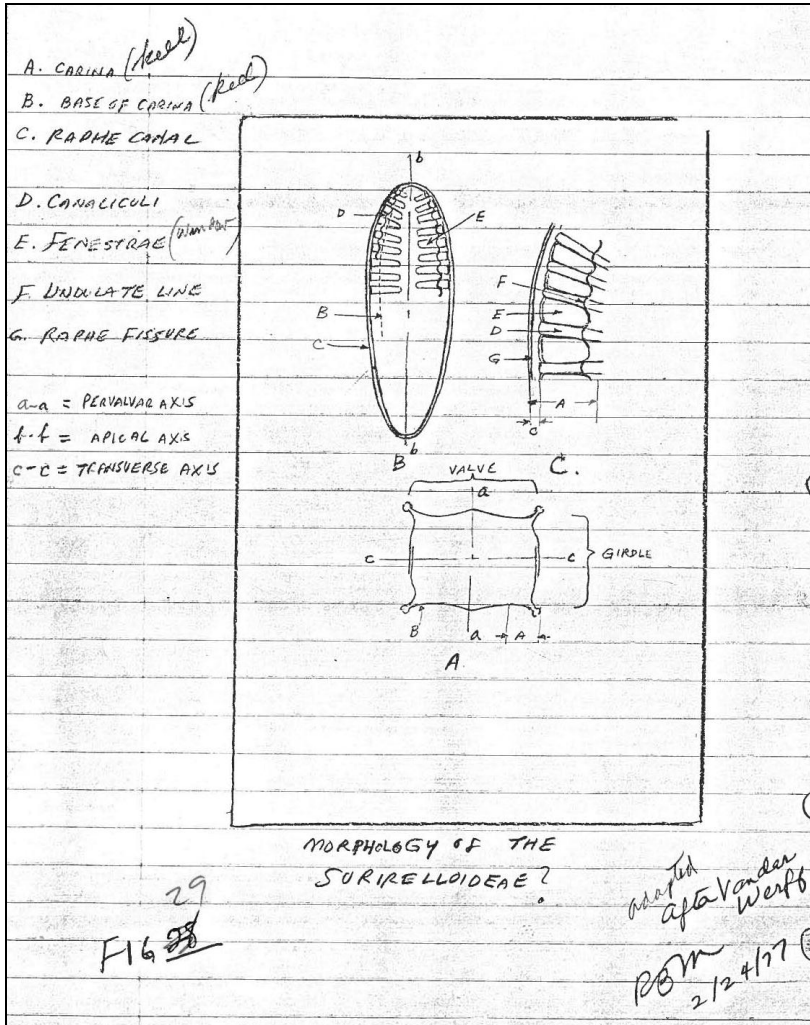 A. CARINA (keel)
B. BASE OF CARINA (keel)
C. RAPHE CANAL
D. CANALICULI
E. FENESTRAE (window)
F. UNDULATE LINE
G. RAPHE FISSURE
a-a = PERVALVAR AXIS
b-b = APICAL AXIS
c-c = TRANSVERSE AXIS
b
D
E
B
C
b
B
F
E
D
G
A
C
C.
VALVE
a
c
c
GIRDLE
B
a
A
A.
MORPHOLOGY OF THE
SURIRELLOIDEAE?
29
FIG 28
adapted
after Vander
Werff
RBM
2/24/77